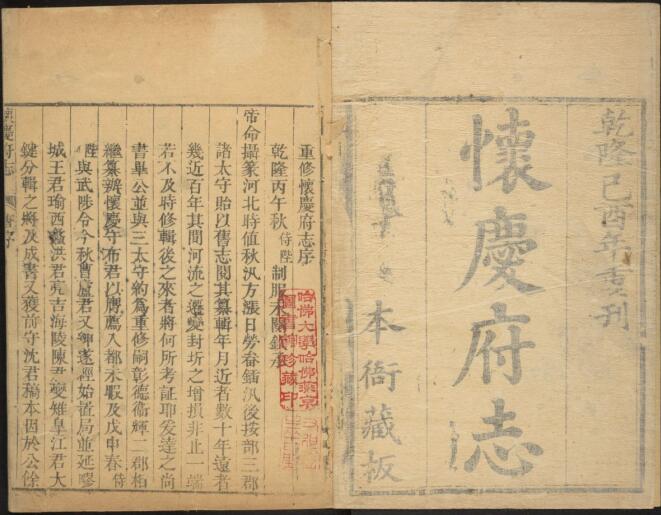 乾隆己酉年重刊
懷慶府志
本衙藏板
重修懷慶府志序
乾隆丙午秋侍陛制服未闋欽承
帝命攝篆河北時值秋汛方漲日勞畚鍤汛後按部三郡
諸太守貽以舊志閱其纂輯年月近者數十年遠者
幾近百年其間河流之遷變封圻之增損非止一端
若不及時修輯後之來者將何所考証耶爰達之尚
書畢公並與三太守約為重修嗣彰德衛輝二郡相
繼纂辦懷慶守布君以膺薦入都未暇及戊申春侍
陛與武陟令今秋曹盧君又紳遂經始置局並延
城王君瑜西洪君亮吉海陵陳君燮雉皐江君大
鍵分輯之將及成書又獲前守沈君稿本因於公餘
懷慶府志
哈佛大學哈佛燕京
圖書館珍藏印